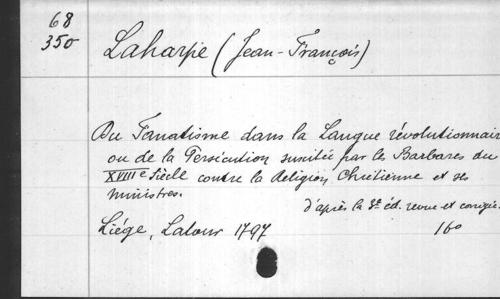 68
350
Laharpe (Jean-François)
Du Fanatisme dans la Langue révolutionnair
ou de la Persécution suscitée par les Barbares du
XVIIIe Siècle contre la Religion Chrétienne et ses
ministres.
d'après la 3e éd. revue et corrigée.
Liége, Latour 1797
16o